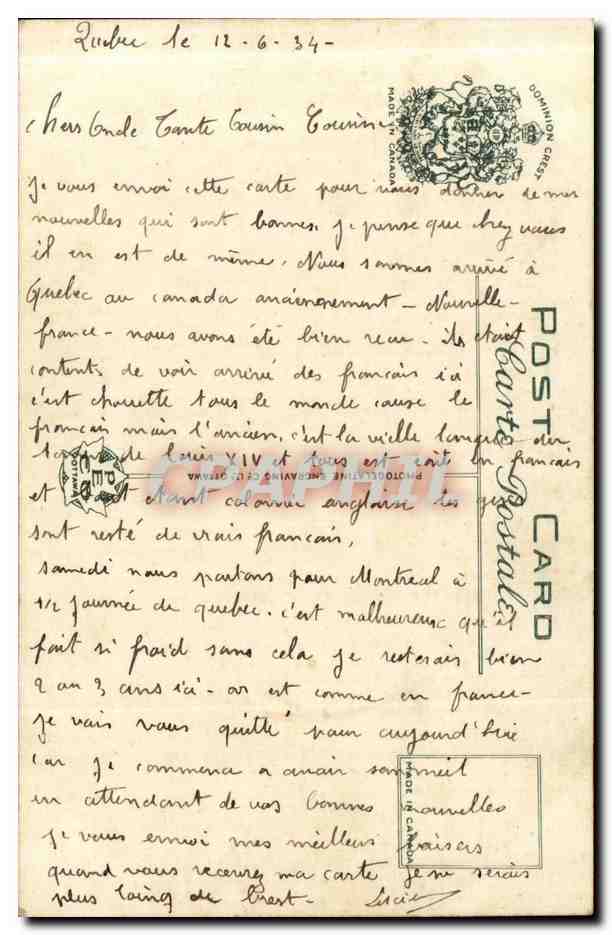 Quebec le 12-6-34-
DOMINION CREST
MADE IN CANADA
Chers Oncle Tante Cousin Cousine
Je vous envoi cette carte pour vous donner de mes
nouvelles qui sont bonnes. je pense que chez vous
il en est de même. Nous sommes arrivé à
Quebec au canada anciennement - Nouvelle-
france - nous avons été bien recu - ils etait
contents de voir arrivé des francais ici
c'est chouette tous le monde cause le
francais mais l'ancien, c'est la vielle langue du
temps de Louis XIV et tous est ecrit en francais
et tout etant colonnie anglaise les gens
sont resté de vrais francais,
samedi nous partons pour Montreal à
1/2 journée de quebec. c'est malheureux qu'il
fait si froid sans cela je resterais bien
2 au 3 ans ici - on est comme en france-
je vais vous quitté pour aujourd'hui
car je commence a avoir sommeil
en attendant de vos bonnes nouvelles
je vous envoi mes meilleurs baisers
quand vous recevrez ma carte je ne serais
plus loing de Brest- Lucien
POST CARD
Carte Postale
PECO
OTTAWA
PHOTOGELATINE ENGRAVING CO. LTD. OTTAWA
MADE IN CANADA
CPAPHIL